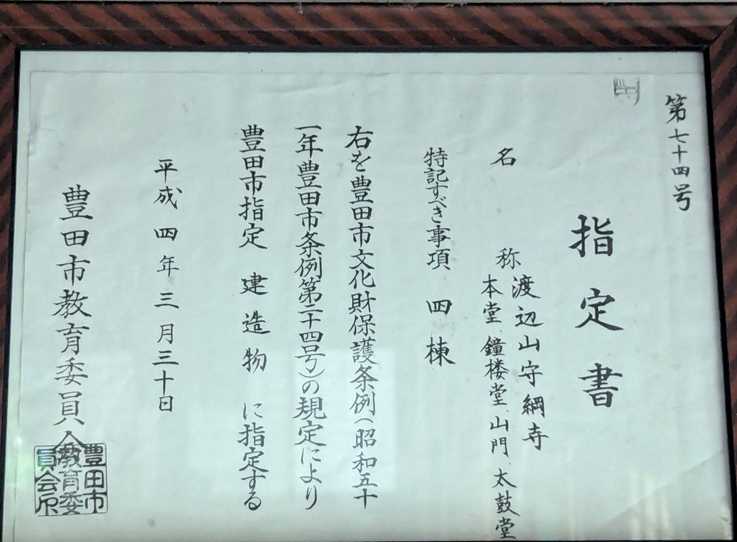 第七十四号
指定書
名称 渡辺山守綱寺
本堂、鐘楼堂、山門、太鼓堂
特記すべき事項 四棟
右を豊田市文化財保護条例(昭和五十
一年豊田市条例第二十四号)の規定により
豊田市指定 建造物 に指定する
平成四年三月三十日
豊田市教育委員会
豊田市
教育委
員会印